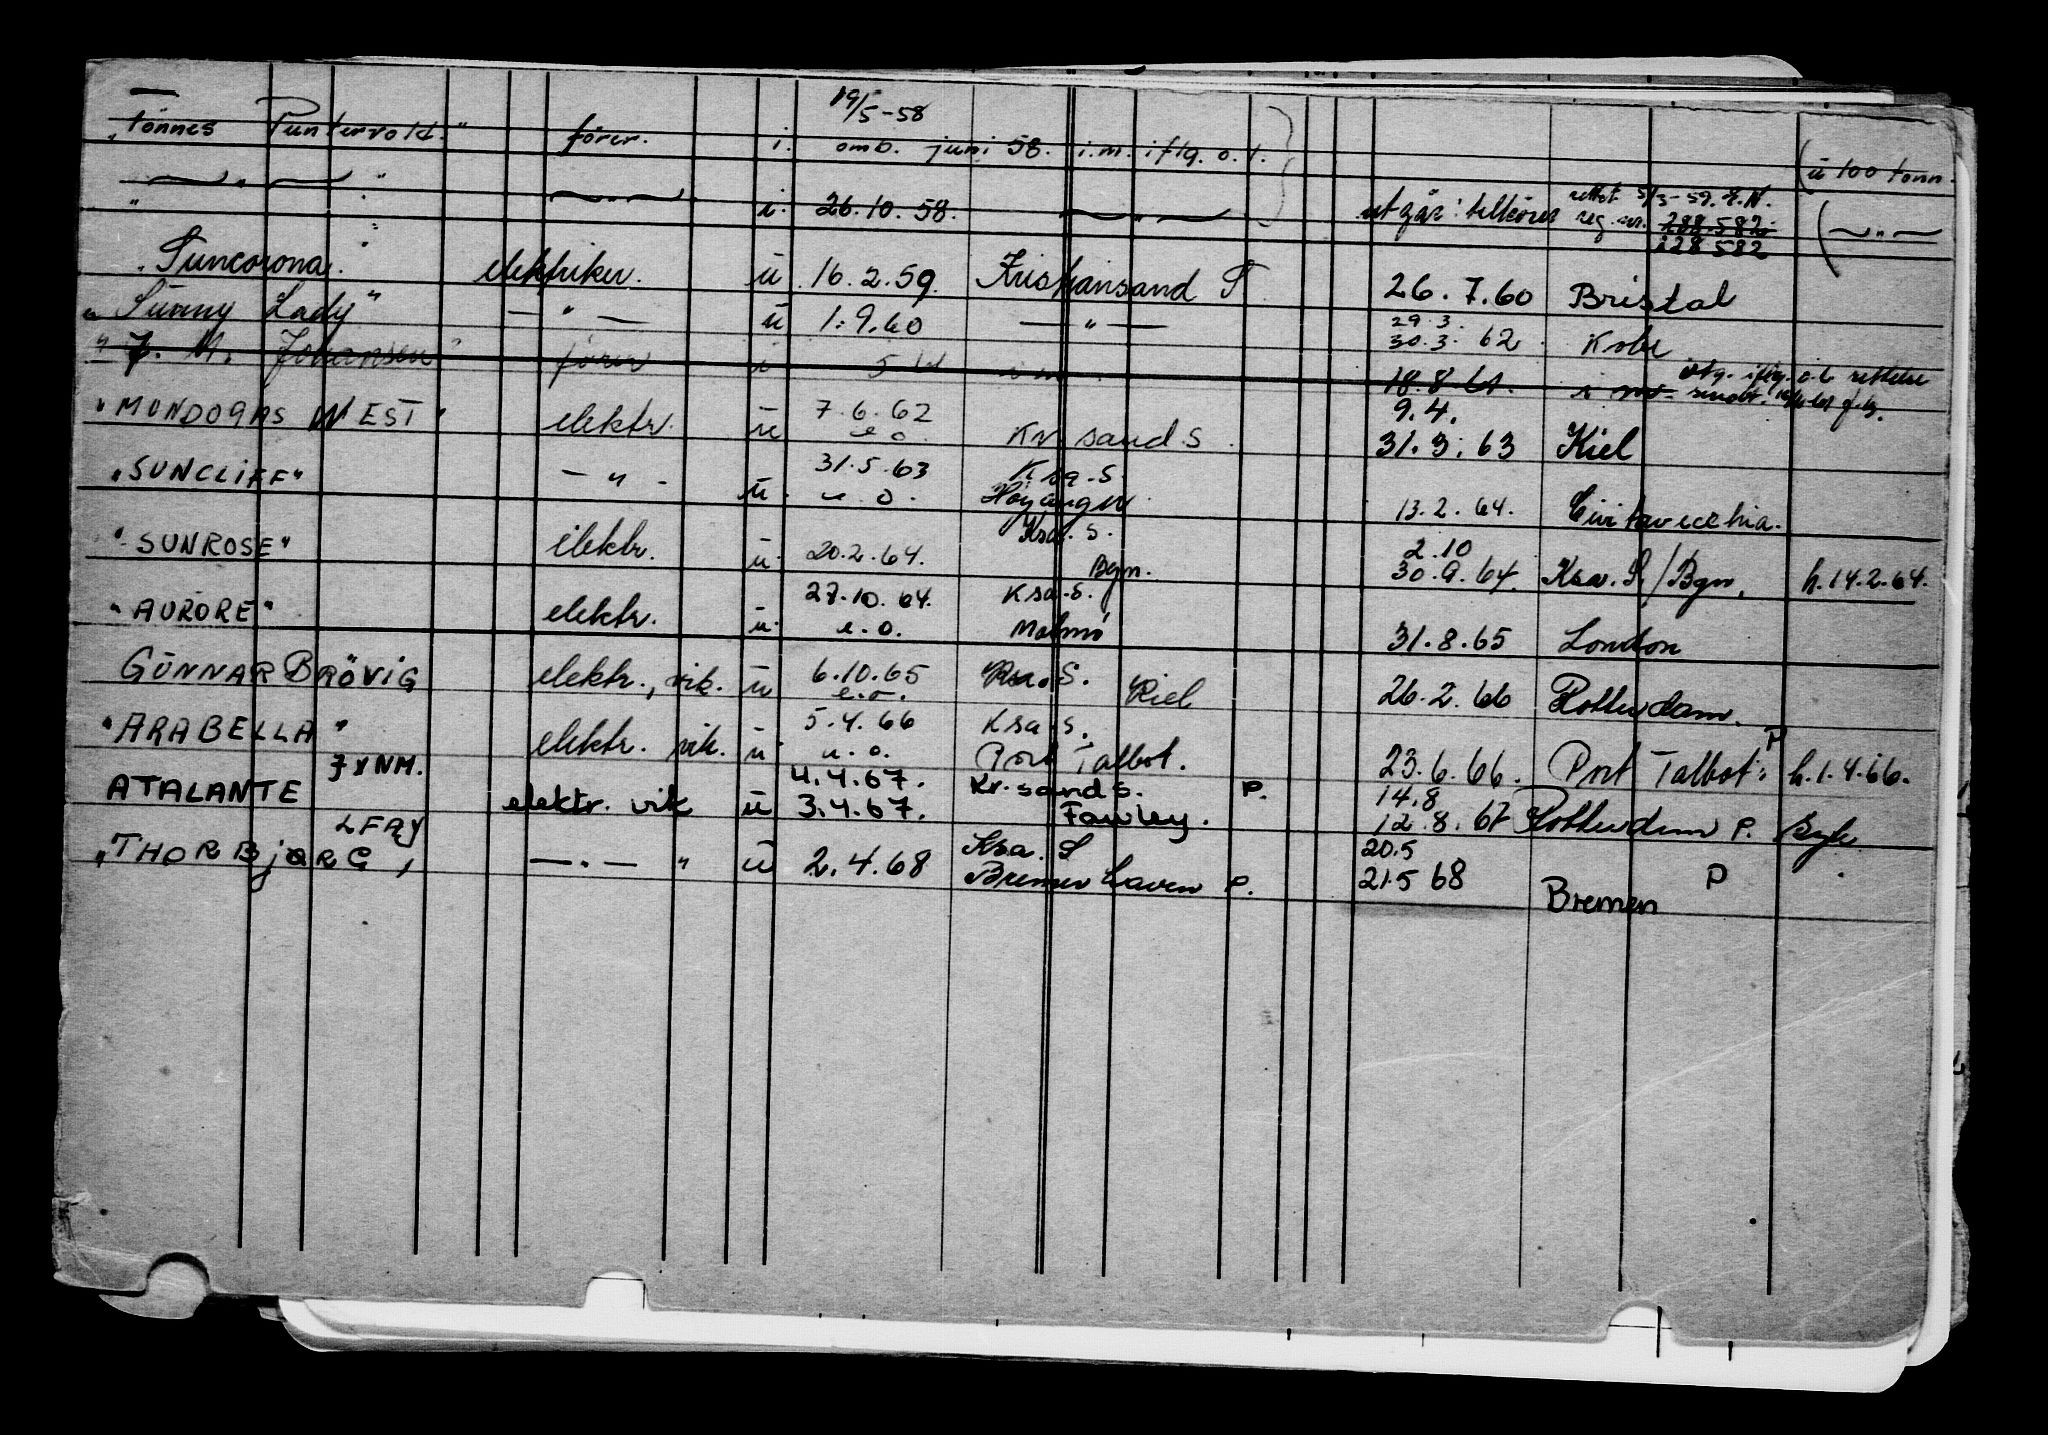 19/5-58
"Tönnes Puntervold." förer. i. omb. juni 58. i.m. iflg. o.l. (u 100 tonn.
" — " — " — " — i. 26.10.58. — " — utgår: rettet 5/3-59.
reg. nr. 288.582 ( — " —
128582
"Suncorona." elektriker. u 16.2.59. Kristiansand S 26.7.60 Bristol
"Sunny Lady" — " — u 1.9.60 — " — 29.3.
30.3.62. Kobe
" J. M. Johansen" förer i 18.8.61. utg. iflg. o.l. rettelse
"MUNDOGAS WEST" elektr. u 7.6.62 e.o. Kr. sand S. 9.4.
31.3.63 Kiel
"SUNCLIFF" — " - u. 31.5.63 u.o. Ksa.S. Høyanger 13.2.64. Civitavecchia.
"SUNROSE" elektr. u. 20.2.64. Ksa. S. Bgn. 2.10
30.9.64. Ksa. S/Bgn. h.14.2.64.
"AURORE" elektr. u. 27.10.64. e.o. Ksa.S. Malmö 31.8.65 London
GUNNAR BRÖVIG elektr., vik. u 6.10.65 e.o. Ksa.S. Kiel 26.2.66 Rotterdam.
"ARABELLA" elektr. vik. u. 5.4.66 u.o. Ksa.S. Port Talbot. 23.6.66. Port Talbot. P h.1.4.66.
JXNM.
ATALANTE elektr. vik u 4.4.67. 3.4.67. Kr.sand S. Fawley. P. 14.8
12.8.67 Rotterdam P.
LFQY
"THORBJØRG, — " — " u 2.4.68 Ksa. S Bremerhaven P. 20.5
21.5 68 Bremen P